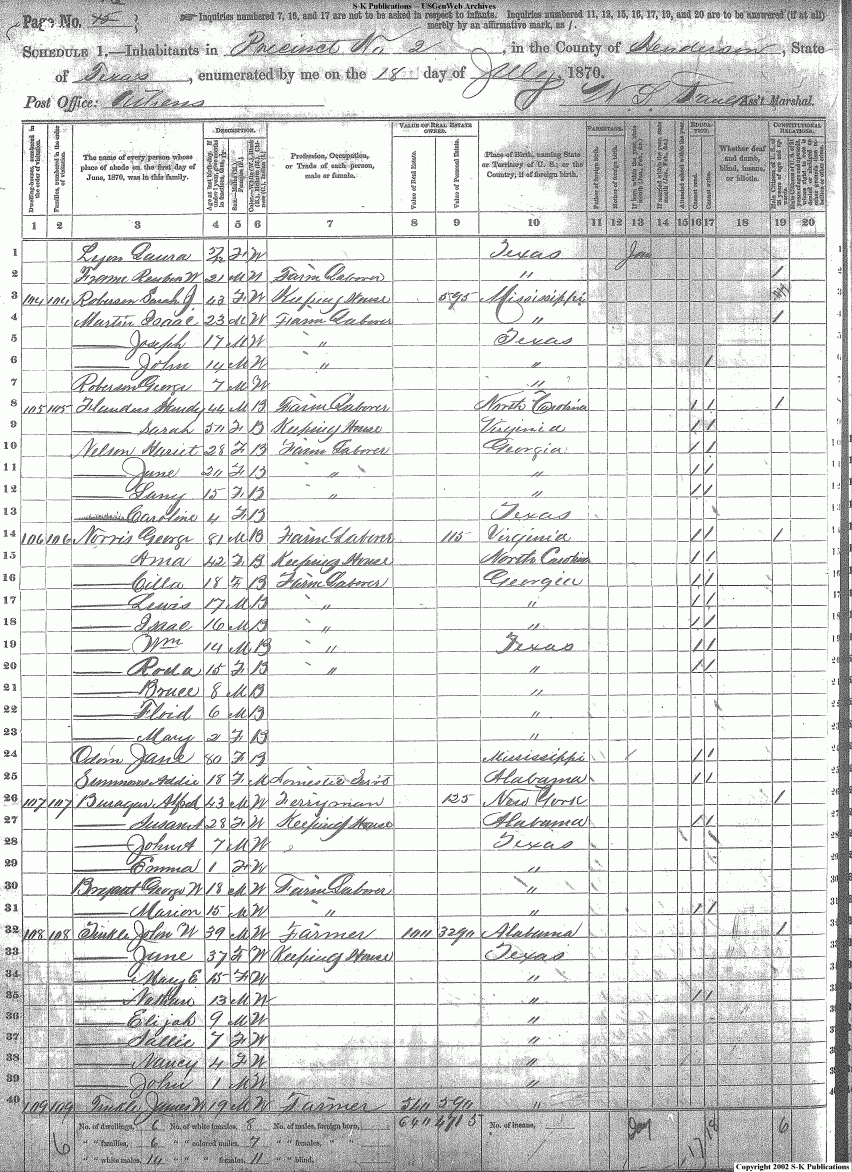 S-K Publications -- USGenWeb Archives
Page No. 45
Inquiries numbered 7, 16, and 17 are not to be asked in respect to infants. Inquiries numbered 11, 12, 15, 16, 17, 19, and 20 are to be answered (if at all)
merely by an affirmative mark, as /.
SCHEDULE 1.—Inhabitants in Precinct No. 2, in the County of Henderson, State
of Texas, enumerated by me on the 18 day of July, 1870.
Post Office: Athens W. L. Ass't Marshal.
DESCRIPTION. VALUE OF REAL ESTATE OWNED. PARENTAGE. EDUCATION. CONSTITUTIONAL RELATIONS.
Dwelling-houses, numbered in the order of visitation.
Families, numbered in the order of visitation.
The name of every person whose place of abode on the first day of June, 1870, was in this family.
Profession, Occupation, or Trade of each person, male or female.
Value of Real Estate.
Value of Personal Estate.
Place of Birth, naming State or Territory of U. S.; or the Country, if of foreign birth.
Father of foreign birth.
Mother of foreign birth.
Attended school within the year.
Cannot read.
Cannot write.
Whether deaf and dumb, blind, insane, or idiotic.
1 2 3 4 5 6 7 8 9 10 11 12 13 14 15 16 17 18 19 20
1 Lyon Laura F W Texas Jan
2 Frome Reuben W 21 M W Farm Laborer " /
3 104 104 Roberson Sarah J 43 F W Keeping House 595 Mississippi
4 Martin Isaac 23 M W Farm Laborer " /
5 —— Joseph 17 M W " Texas
6 —— John 14 M W " " /
7 Roberson George 7 M W "
8 105 105 Flanders Handy 44 M B Farm Laborer North Carolina / / /
9 —— Sarah 50 F B Keeping House Virginia / /
10 Nelson Hariet 28 F B Farm Laborer Georgia / /
11 —— June 20 F B " " / /
12 —— Lany 15 F B " " / /
13 —— Caroline 4 F B Texas
14 106 106 Norris George 81 M B Farm Laborer 115 Virginia / / /
15 —— Ama 42 F B Keeping House North Carolina / /
16 —— Cilla 18 F B Farm Laborer Georgia / /
17 —— Lewis 17 M B " " / /
18 —— Isaac 16 M B " " / /
19 —— Wm 14 M B " Texas / /
20 —— Roda 15 F B " " / /
21 —— Bruce 8 M B "
22 —— Floid 6 M B "
23 —— Mary 2 F B "
24 Odom Jane 80 F B Mississippi / /
25 Summons Addie 18 F M Domestic Servt Alabama / /
26 107 107 Alfred 43 M W Ferryman 125 New York /
27 —— Susan A 28 F W Keeping House Alabama / /
28 —— John A 7 M W Texas
29 —— Emma 1 F W "
30 Bryant George W 18 M W Farm Laborer "
31 —— Marion 15 M W " " / /
32 108 108 Tinkle John W 39 M W Farmer 100 3290 Alabama /
33 —— June 37 F W Keeping House Texas
34 —— Mary E 15 F W "
35 —— Nathan 13 M W " / /
36 —— Elijah 9 M W "
37 —— Sallie 7 F W "
38 —— Nancy 4 F W "
39 —— John 1 M W "
40 109 109 Tinkle James W 19 M W Farmer 540 590 "
No. of dwellings, 6 No. of white females, 8 No. of males, foreign born, 640 4715 No. of insane, Jan 6
" " families, 6 " " colored males, 7 " " females, 17 18
" " white males, 14 " " females, 11 " " blind,
6
Copyright 2002 S-K Publications